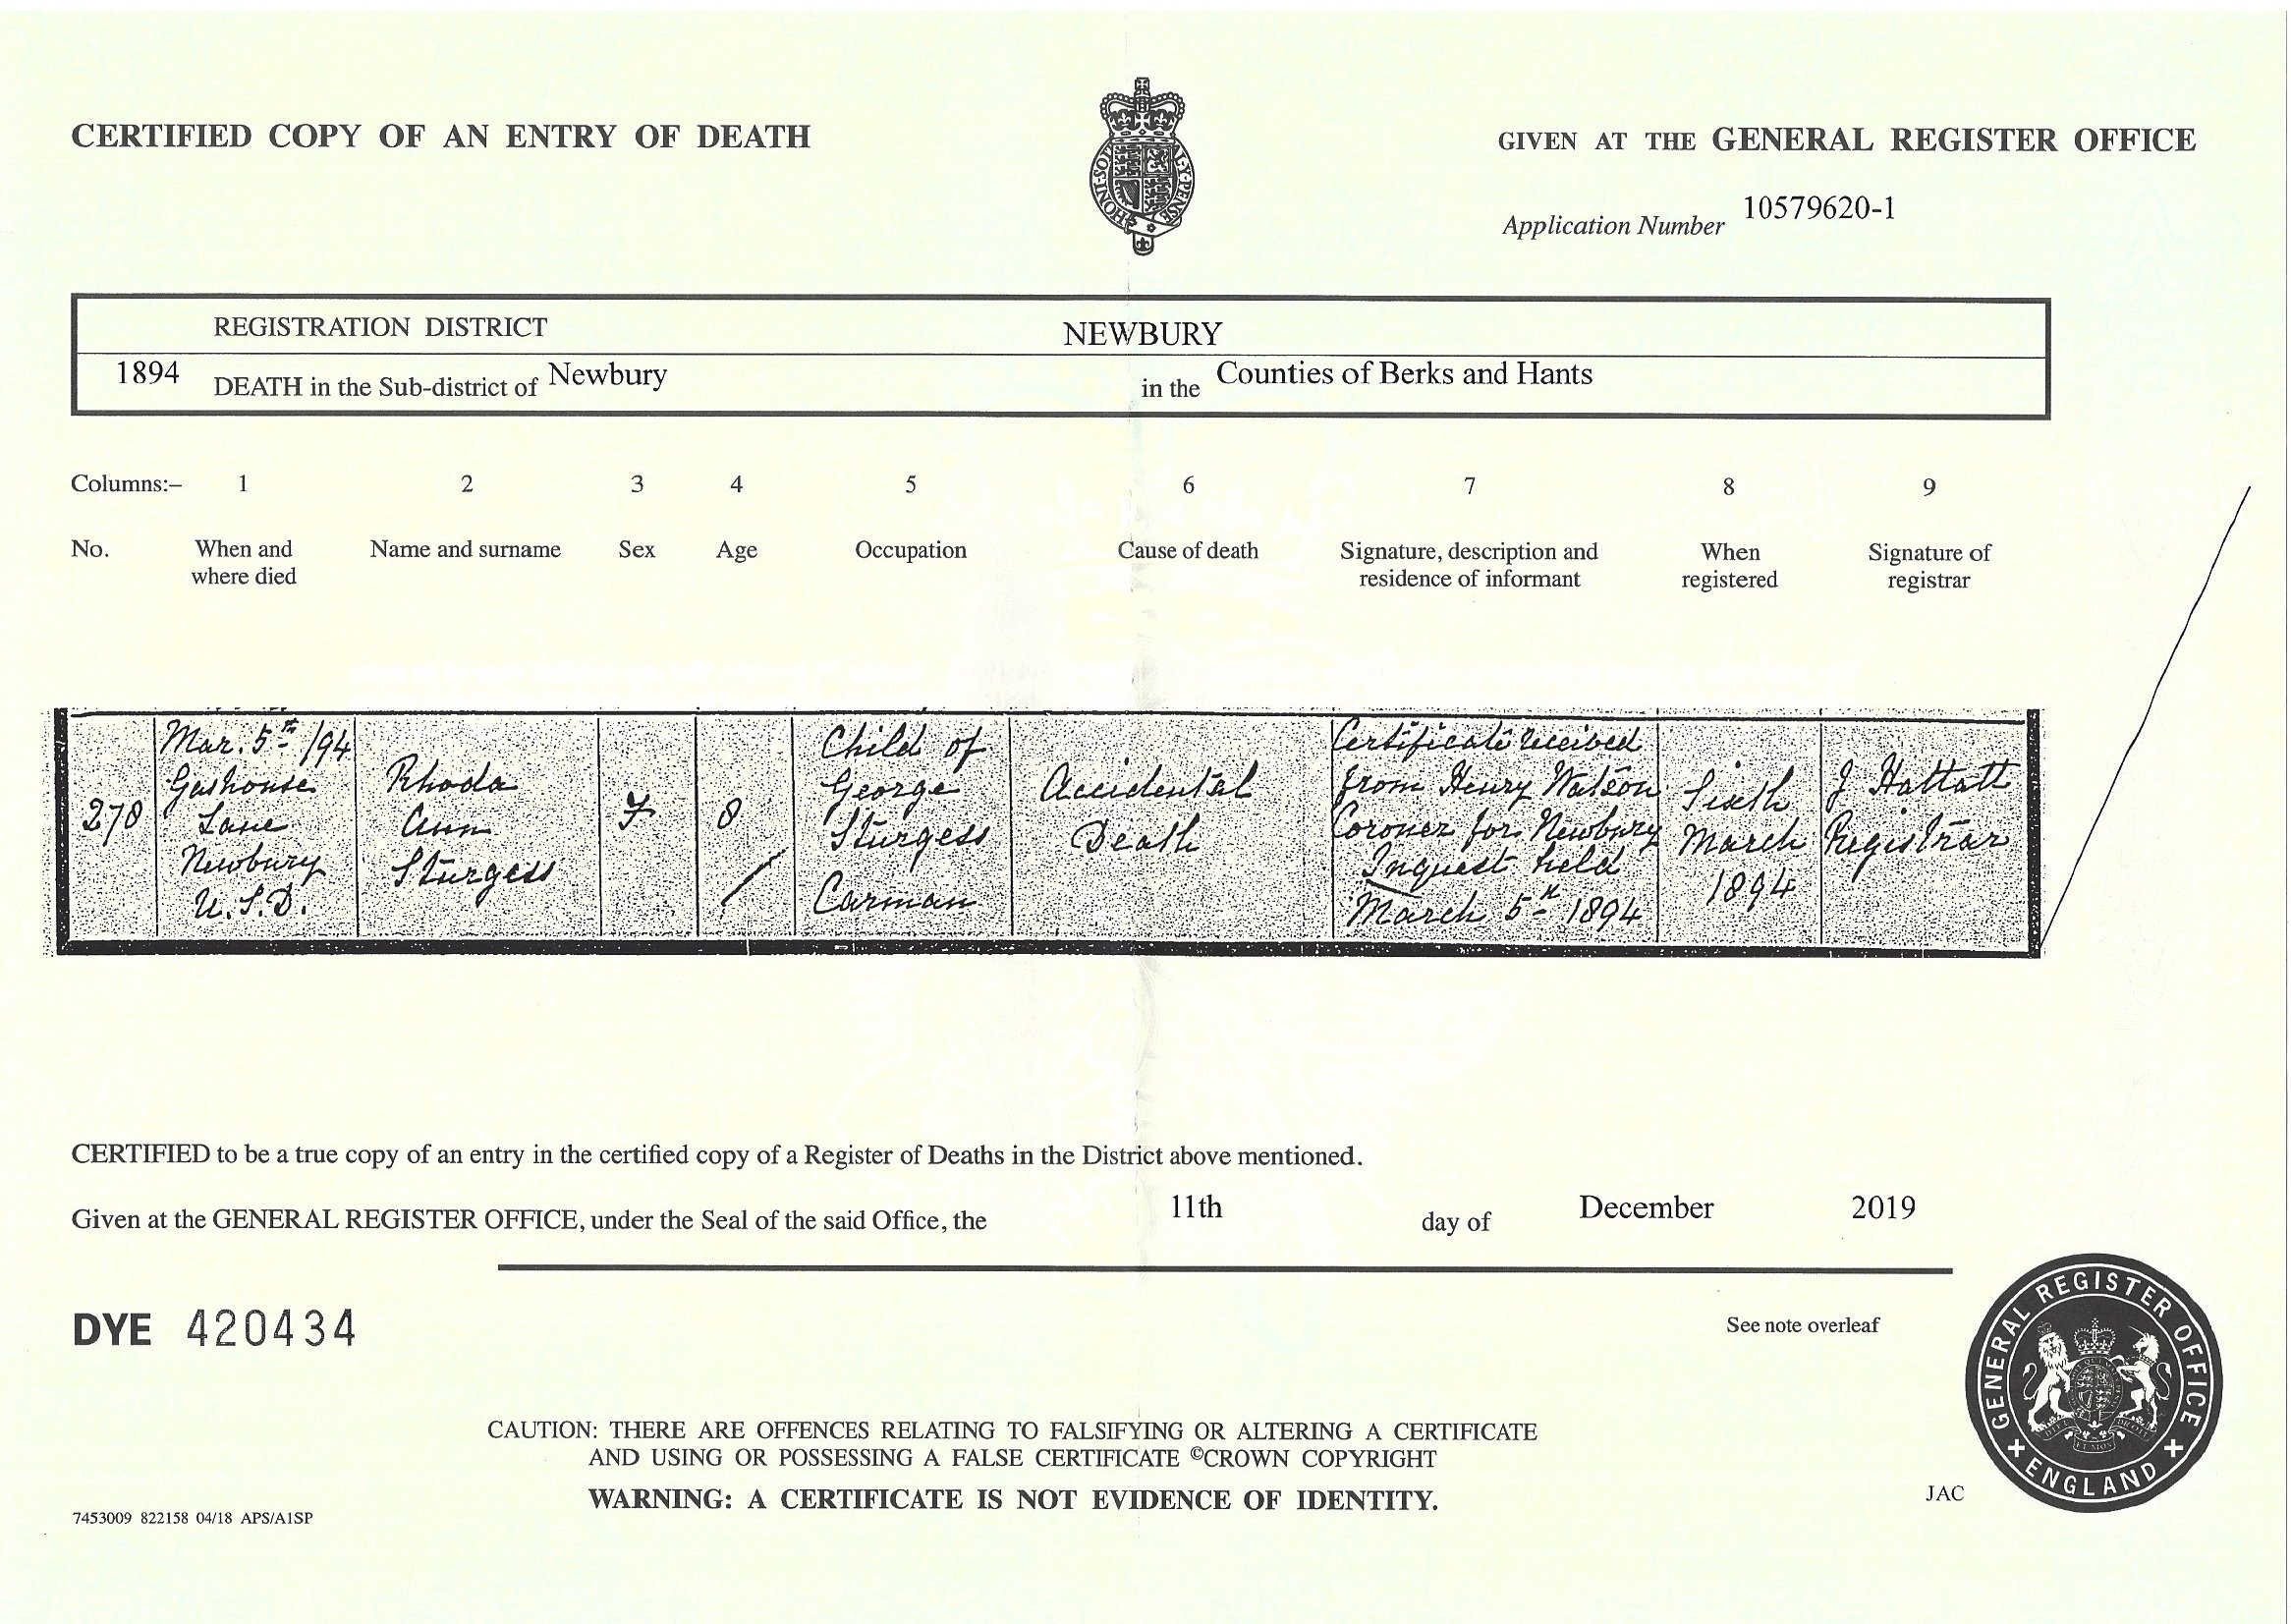 CERTIFIED COPY OF AN ENTRY OF DEATH
GIVEN AT THE GENERAL REGISTER OFFICE
Application Number 10579620-1
REGISTRATION DISTRICT NEWBURY
1894 DEATH in the Sub-district of Newbury in the Counties of Berks and Hants
Columns:– 1 2 3 4 5 6 7 8 9
No. When and where died Name and surname Sex Age Occupation Cause of death Signature, description and residence of informant When registered Signature of registrar
278
Mar. 5th /94
Gashouse
Lane
Newbury
U.S.D.
Rhoda
Ann
Sturgess
F
8
Child of
George
Sturgess
Carman
Accidental
Death
Certificate received
from Henry Watson
Coroner for Newbury
Inquest held
March 5th 1894
Sixth
March
1894
J Hattatt
Registrar
CERTIFIED to be a true copy of an entry in the certified copy of a Register of Deaths in the District above mentioned.
Given at the GENERAL REGISTER OFFICE, under the Seal of the said Office, the 11th day of December 2019
DYE 420434
See note overleaf
GENERAL REGISTER OFFICE
ENGLAND
CAUTION: THERE ARE OFFENCES RELATING TO FALSIFYING OR ALTERING A CERTIFICATE
AND USING OR POSSESSING A FALSE CERTIFICATE ©CROWN COPYRIGHT
WARNING: A CERTIFICATE IS NOT EVIDENCE OF IDENTITY.
JAC
7453009 822158 04/18 APS/A1SP